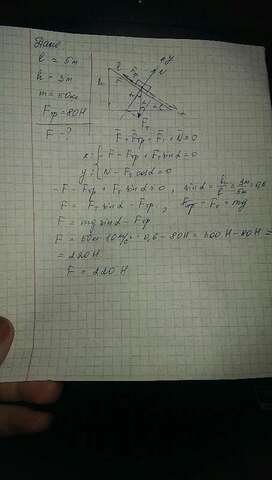 Дано
l = 5м
h = 3м
m = 50кг
Fтр = 80Н
F - ?
F + Fтр + Fт + N = 0
x: { -F - Fтр + Fт sin α = 0
y: { N - Fт cos α = 0
-F - Fтр + Fт sin α = 0, sin α = h/l = 3м/5м = 0,6
F = Fт sin α - Fтр,
F = mg sin α - Fтр
F = 50кг · 10 м/с² · 0,6 - 80Н = 300Н - 80Н =
= 220Н
F = 220Н